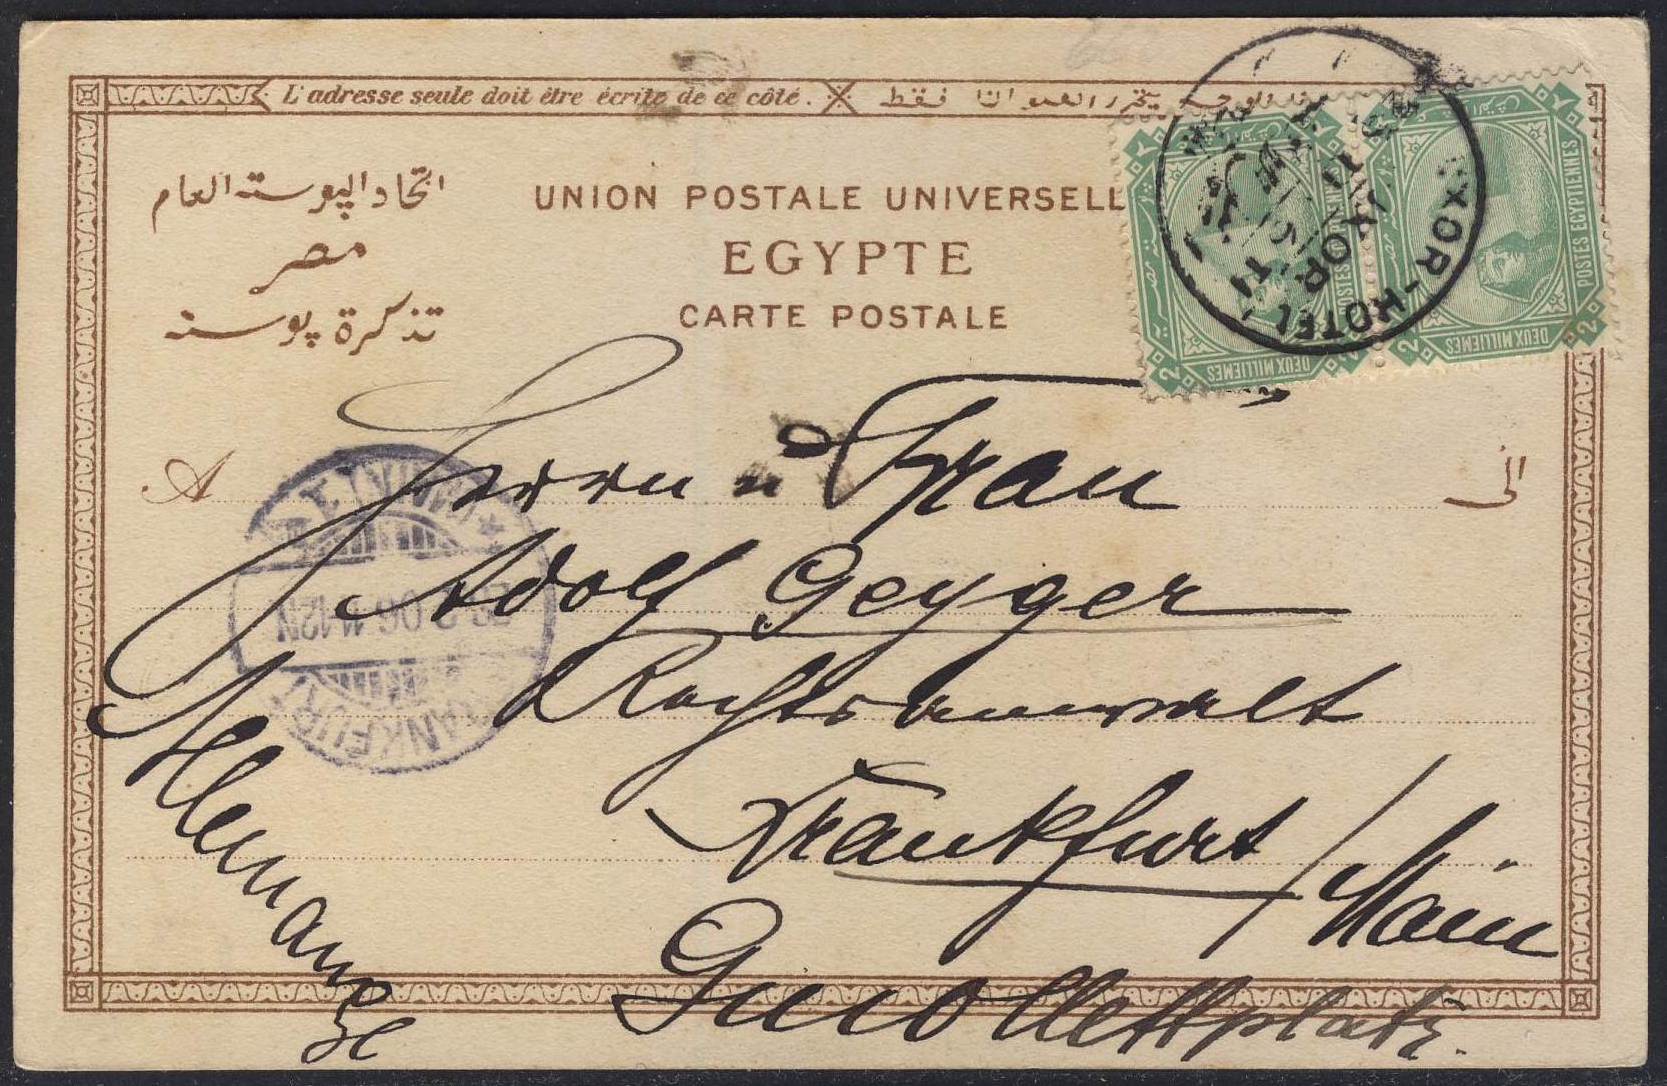 L'adresse seule doit être écrite de ce côté.
فقط
اتحاد البوسته العام
مصر
تذكرة بوسته
UNION POSTALE UNIVERSELL
EGYPTE
CARTE POSTALE
LUXOR-HOTEL
LUXOR
POSTES EGYPTIENNES
DEUX MILLIEMES
2
2
POSTES EGYPTIENNES
DEUX MILLIEMES
2
2
A
الى
Herrn u Frau
Adolf Geyger
Rechtsanwalt
Frankfurt / Main
Guiollettplatz.
Allemange
FRANKFURT
06 11-12N
(MAIN) 1